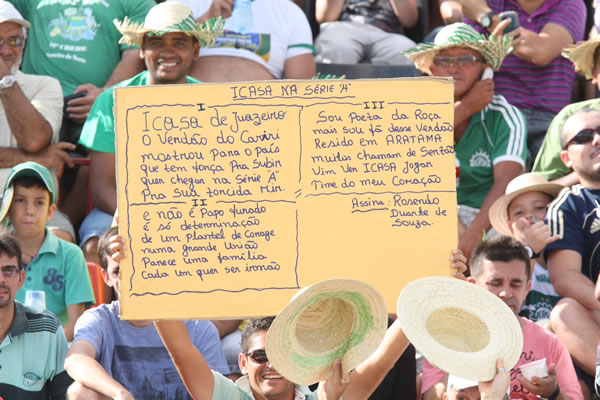 ICASA NA SÉRIE "A"
I
ICASA de Juazeiro
O Verdão do Cariri
mostrou Para o país
que tem força Pra subir
quer chegar na Série "A"
Pra sua torcida Mir.
II
e não é Papo furado
é só determinação
de um plantel de Corage
numa grande União
Parece uma família
Cada um quer ser irmão
III
Sou Poeta da Roça
mais sou fã desse Verdão
Resido em ARATAMA
muitos chamam de Sertão
Vim Ver ICASA Jogar
Time do meu Coração
Assina: Rosendo
Duarte de
Souza.
85